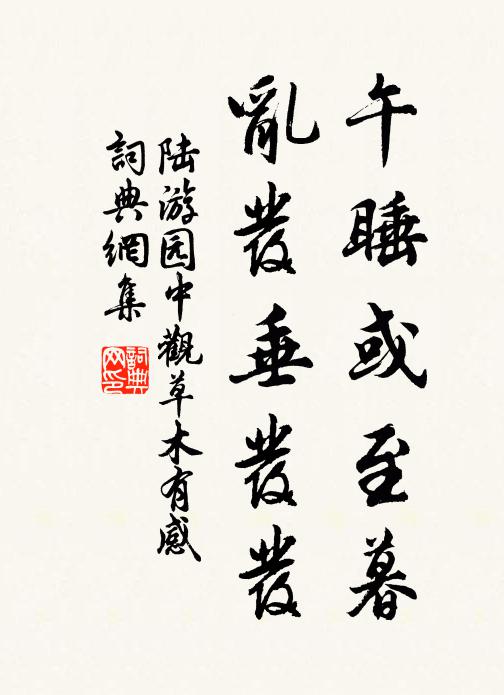 午睡或至暮
亂發垂發發
陆游园中觀草木有感
詞典網集
詞典网印